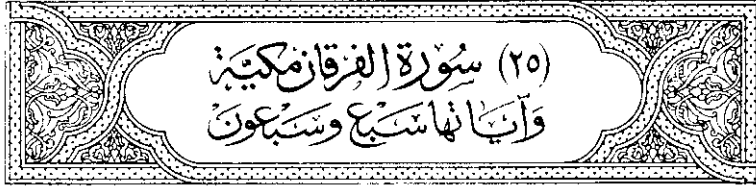 (٢٥) سُورَة الفرقَان مَكيَّة
وَآيَاتهَا سَبْع وَسَبْعُونَ